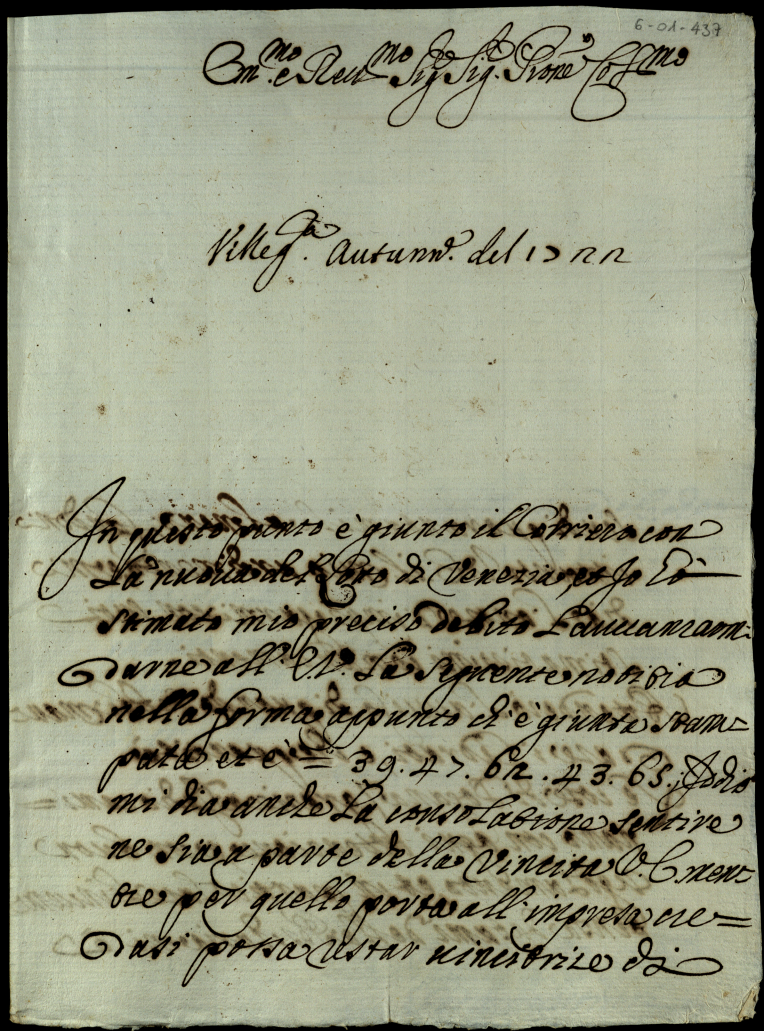 6-01-437
Em.mo e Reu.mo Sig.r Sig.r Prone Col.mo
Villeg.ra Autunn. del 1722
In questo punto è giunto il Corriero con
La nuoua del Loto di Venezia, et Io hò
stimato mio preciso debito L'auuanzarm-
darne all' E.V. La seguente notitia
nella forma appunto ch'è giunta stam=
pata et è = 39. 47. 62. 43. 65. Iddio
mi dia anche La consolatione sentire
ne sia a parte della Vincita V. E. men-
tre per quello porta all'impresa cre=
dasi possa restar uincitrice di